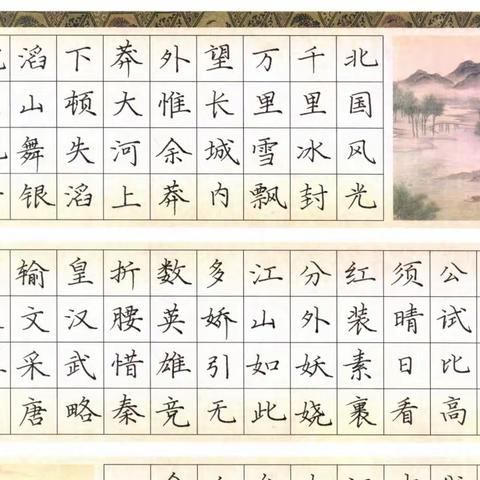 北国风光
千里冰封
万里雪飘
望长城内
外惟余莽
莽大河上
下顿失滔
滔山舞银
公试比高
须晴日看
红装素裹
分外妖娆
江山如此
多娇引无
数英雄竞
折腰惜秦
皇汉武略
输文采唐